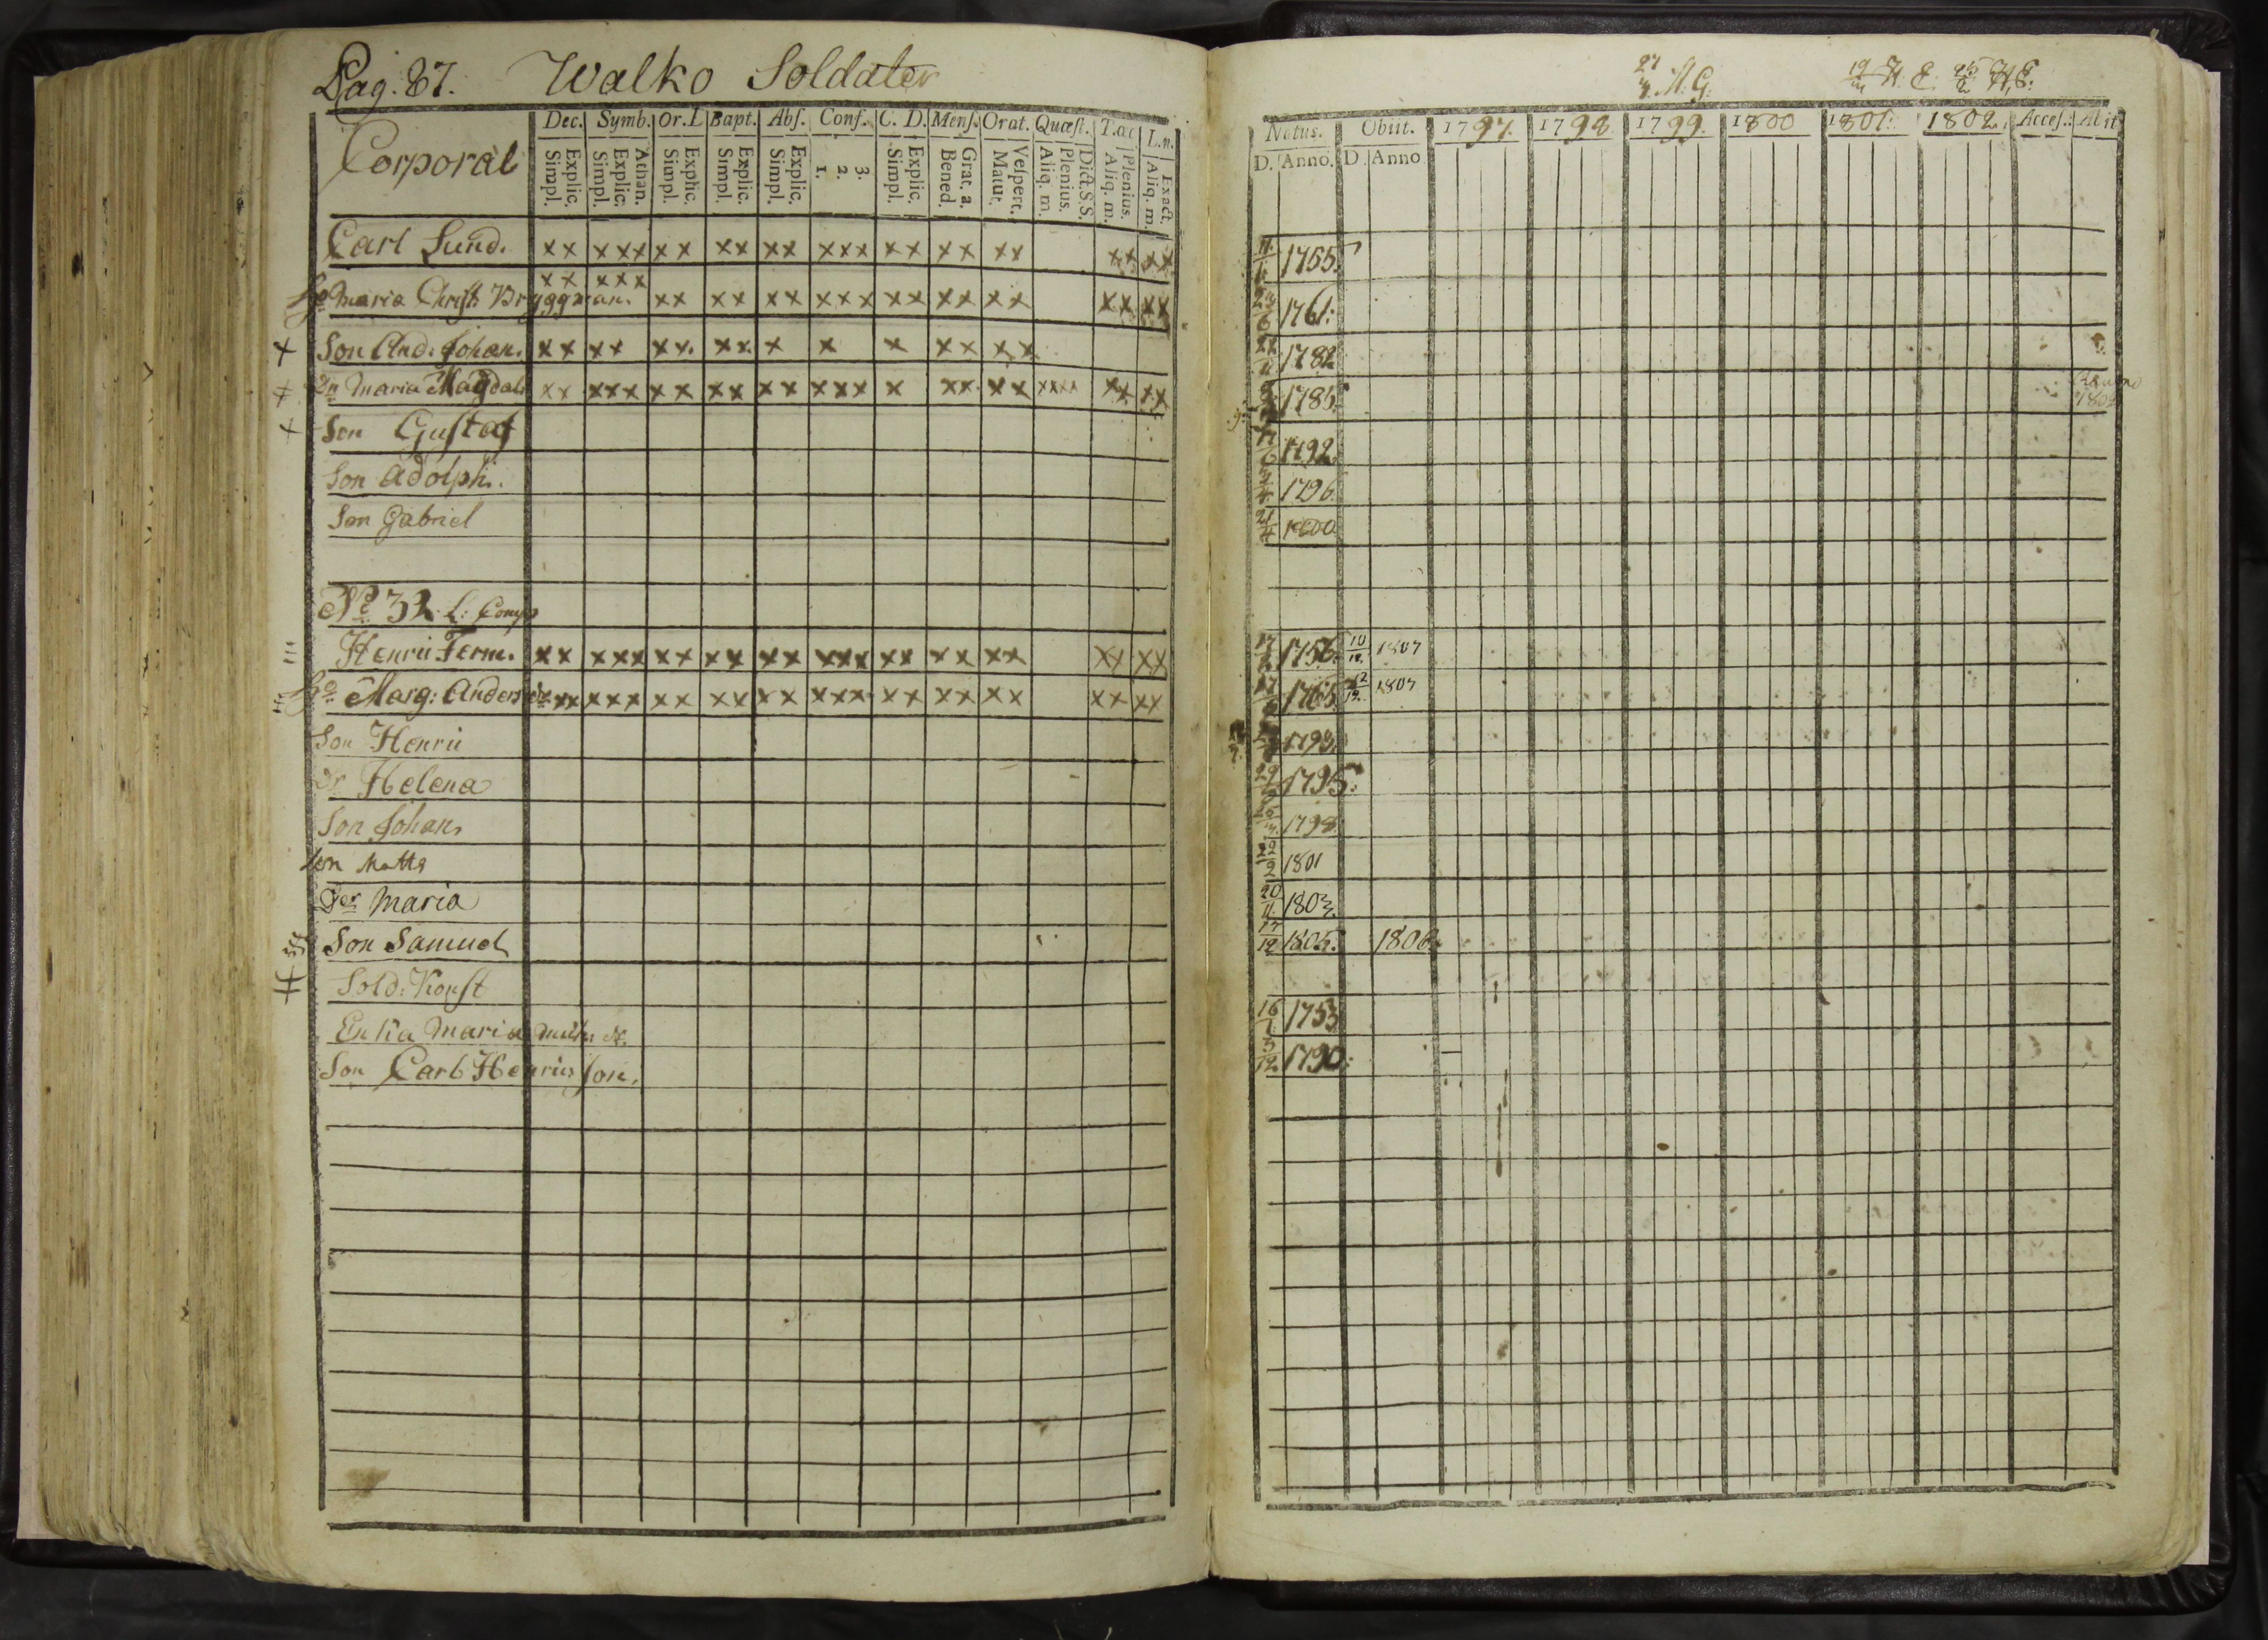 Pag. 87. Walko Soldater
Corporal
Dec. Symb. Or. L Bapt. Abſ. Conf. C. D. Menſ. Orat. Quæſt. T.ac L.n.
Explic. Simpl. Athan. Explic. Simpl. Explic. Simpl. Explic. Simpl. Explic. Simpl. 3. 2. 1. Explic. Simpl. Grat. a. Bened. Veſpert. Matut. Dict.S.S. Plenius. Aliq. m. Plenius. Aliq. m. Exact. Aliq. m.
Carl Lund. xx xxx xx xx xx xxx xx xx xx xx xx
xx xxx
Maria Christ: Bryggman. xx xx xx xxx xx xx xx xx xx
+ Son And: Johan. xx xx xx. xx. x x x xx xx
Maria Magdal xx xxx xx xx xx xxx x xx xx xxxx xx xx
+ Son Gustaf
Son Adolph.
Son Gabriel
No 32 L: Comp
Henric Ferm. xx xxx xx xx xx xxx xx xx xx xx xx
Marg: Anders dr xx xxx xx xx xx xxx xx xx xx xx xx
Son Henric
Dr Helena
Son Johan
Son Matts
Der Maria
Son Samuel
Sold: Konst
Enka Maria
Son Carl Henricsson.
27 M. G. 19 H. E. 25 H. E.
Natus. Obiit. 1797. 1798. 1799. 1800 1801. 1802. Acceſ. Abiit
D. Anno. D. Anno
1755.
23/6 1761.
1782
1785.
1792
1796.
21/4 1800
17 1756. 10/12 1807
17 1765. 12/12 1807
1793.
29 1795.
1798.
22/2 1801
20/11 1803.
17/12 1805. 1806.
16/1 1753
3/12 1790.